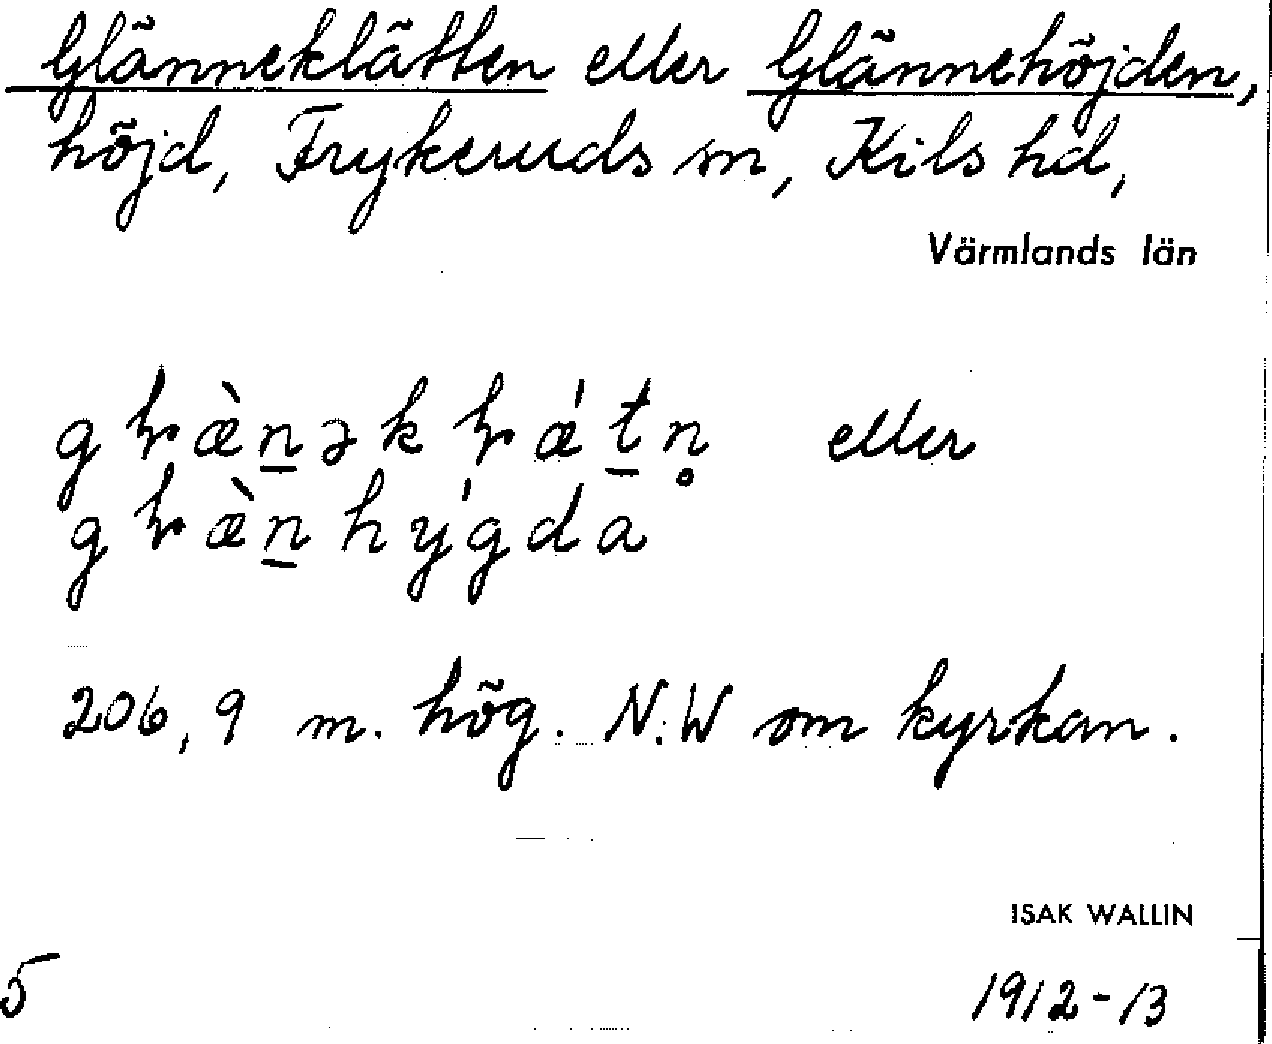 Glänneklätten eller Glännehöjden,
höjd, Frykeruds sn, Kils hd,
Värmlands län
gɽæ̀n̲əkɽǽt̲n̥ eller
gɽæ̀n̲hýgda
206,9 m. hög. N.W om kyrkan.
ISAK WALLIN
5
1912-13